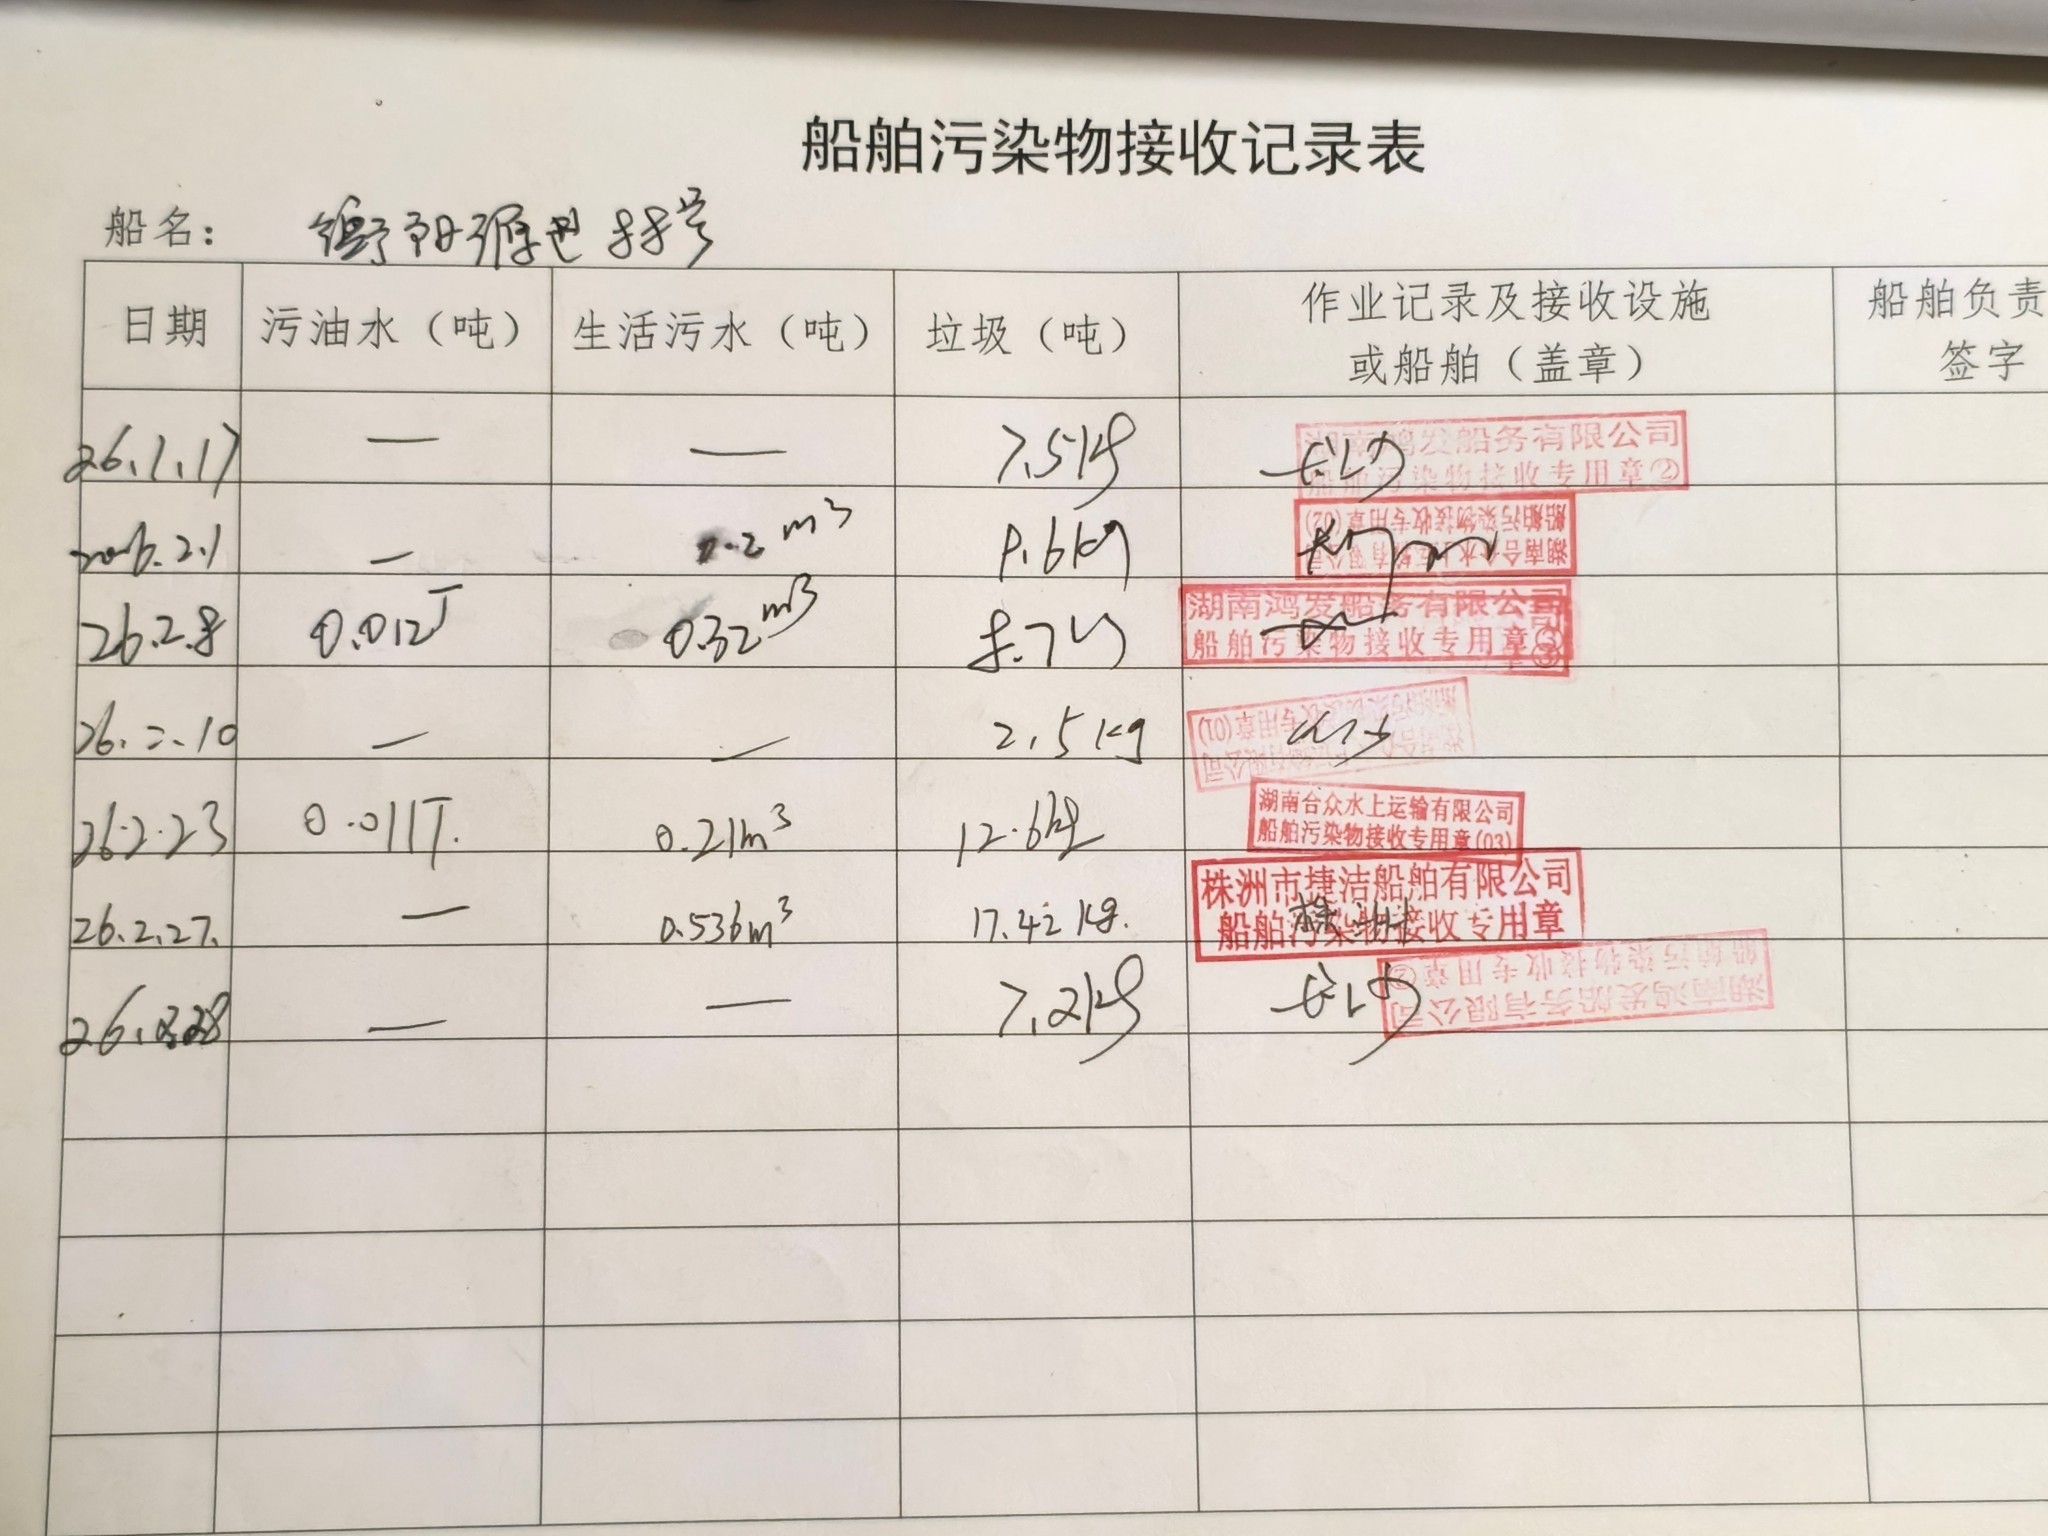 船舶污染物接收记录表
船名： 衡阳源进88号
日期 污油水（吨） 生活污水（吨） 垃圾（吨） 作业记录及接收设施或船舶（盖章） 船舶负责 签字
26.1.17 — — 7.5kg 长沙 湖南鸿发船务有限公司 船舶污染物接收专用章②
2026.2.1 — 0.2 m3 9.6kg 湖南合众水上运输有限公司 船舶污染物接收专用章(02)
26.2.8 0.012T 0.32m3 8.7kg 湖南鸿发船务有限公司 船舶污染物接收专用章③
26.2.10 — — 2.5kg 船舶污染物接收专用章(01)
26.2.23 0.011T. 0.21m3 12.6kg 湖南合众水上运输有限公司 船舶污染物接收专用章(03)
26.2.27. — 0.536m3 17.42kg. 株洲 株洲市捷洁船舶有限公司 船舶污染物接收专用章
26.2.28 — — 7.2kg 长沙 湖南鸿发船务有限公司 船舶污染物接收专用章②